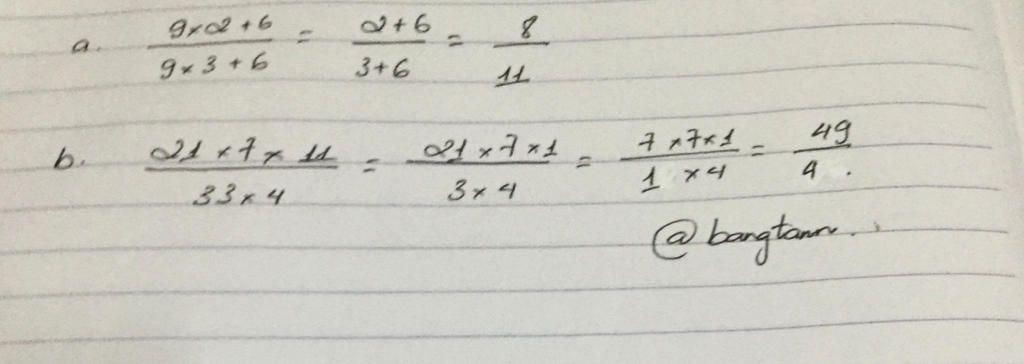 a. 9×2+6 / 9×3+6 = 2+6 / 3+6 = 8 / 11
b. 21×7×11 / 33×4 = 21×7×1 / 3×4 = 7×7×1 / 1×4 = 49 / 4.
@bangtann.